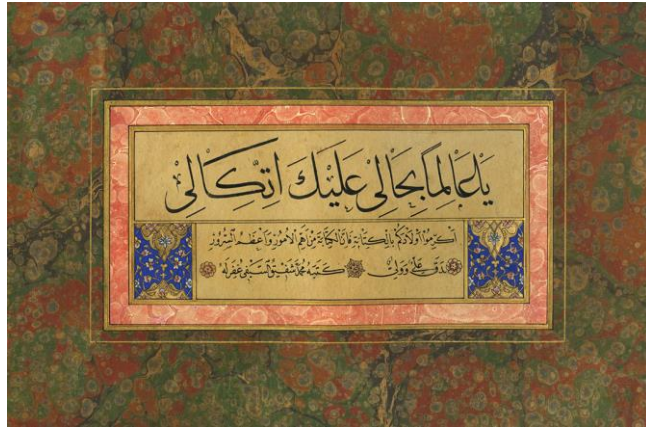 يَا عَالِمًا بِحَالِي عَلَيْكَ اتِّكَالِي
اكرموا اولادكم بالكتابة فان الكتابة من اهم الامور واعظم السرور
صدق علي وولي كتبه محمد شفيق السيفي غفر له